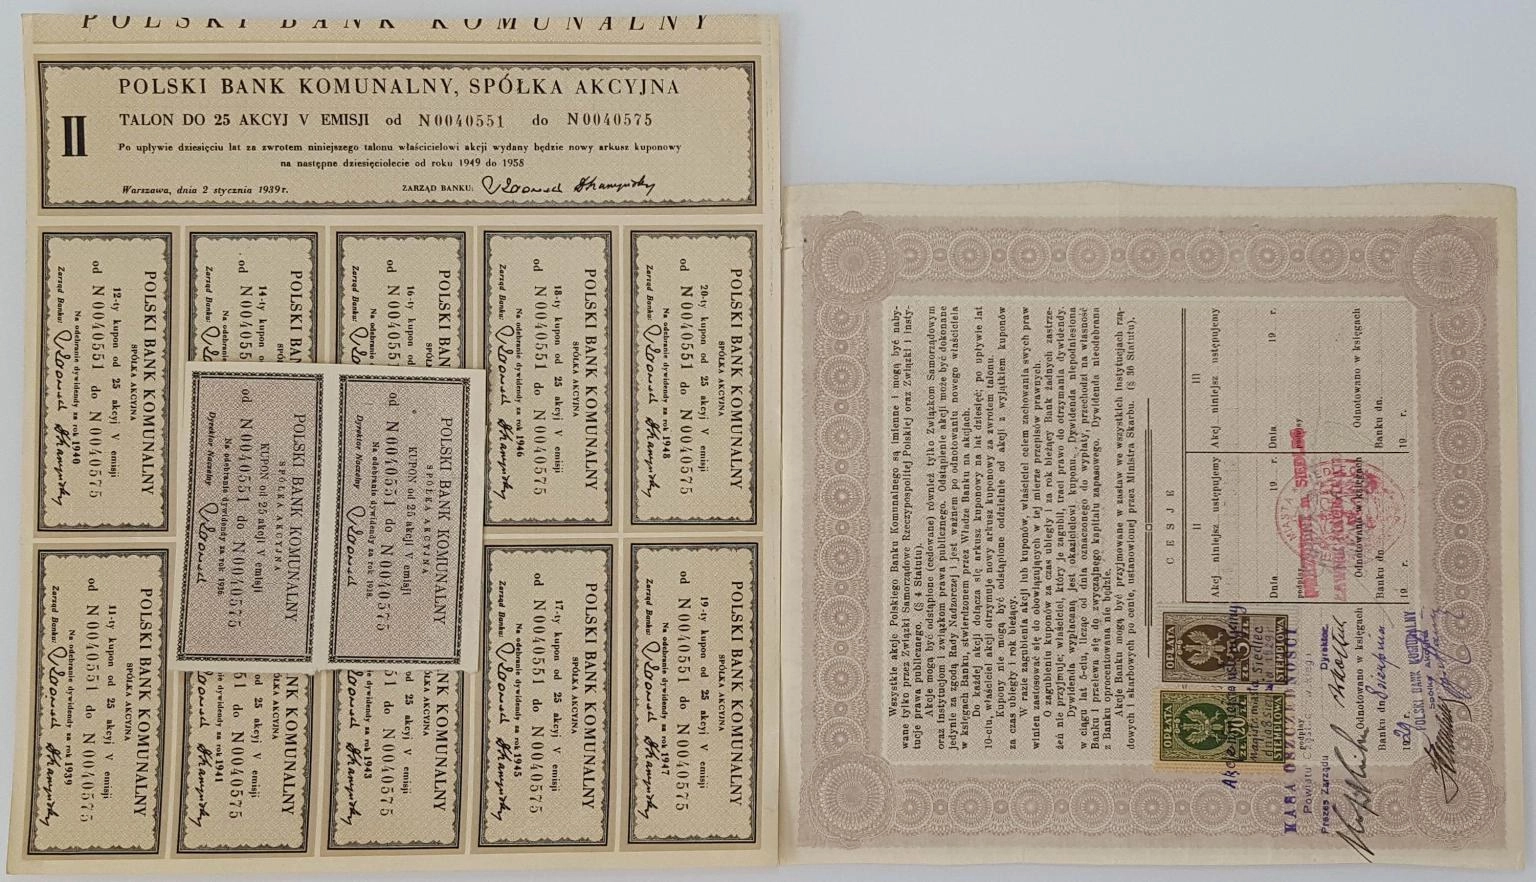 POLSKI BANK KOMUNALNY
POLSKI BANK KOMUNALNY, SPÓŁKA AKCYJNA
II
TALON DO 25 AKCYJ V EMISJI od N0040551 do N0040575
Po upływie dziesięciu lat za zwrotem niniejszego talonu właścicielowi akcji wydany będzie nowy arkusz kuponowy
na następne dziesięciolecie od roku 1949 do 1958
Warszawa, dnia 2 stycznia 1939 r.
ZARZĄD BANKU:
POLSKI BANK KOMUNALNY
SPÓŁKA AKCYJNA
12-ty kupon od 25 akcyj V emisji
od N0040551 do N0040575
Na odebranie dywidendy za rok 1940
Zarząd Banku:
POLSKI
14-ty k
od N00405
Na od
Zarząd Banku:
POLSKI
16-ty k
od N00405
Na ode
Zarząd Banku:
POLSKI BANK KOMUNALNY
SPÓŁKA AKCYJNA
18-ty kupon od 25 akcyj V emisji
od N0040551 do N0040575
Na odebranie dywidendy za rok 1946
Zarząd Banku:
POLSKI BANK KOMUNALNY
SPÓŁKA AKCYJNA
20-ty kupon od 25 akcyj V emisji
od N0040551 do N0040575
Na odebranie dywidendy za rok 1948
Zarząd Banku:
POLSKI BANK KOMUNALNY
SPÓŁKA AKCYJNA
KUPON od 25 akcji V emisji
od N0040551 do N0040575
Na odebranie dywidendy za rok 1936.
Dyrektor Naczelny
POLSKI BANK KOMUNALNY
SPÓŁKA AKCYJNA
KUPON od 25 akcji V emisji
od N0040551 do N0040575
Na odebranie dywidendy za rok 1938.
Dyrektor Naczelny
POLSKI BANK KOMUNALNY
SPÓŁKA AKCYJNA
11-ty kupon od 25 akcyj V emisji
od N0040551 do N0040575
Na odebranie dywidendy za rok 1939
Zarząd Banku:
NK KOMUNALNY
AKCYJNA
od 25 akcyj V emisji
51 do N0040575
dywidendy za rok 1941
NK KOMUNALNY
AKCYJNA
od 25 akcyj V emisji
51 do N0040575
dywidendy za rok 1943
POLSKI BANK KOMUNALNY
SPÓŁKA AKCYJNA
17-ty kupon od 25 akcyj V emisji
od N0040551 do N0040575
Na odebranie dywidendy za rok 1945
Zarząd Banku:
POLSKI BANK KOMUNALNY
SPÓŁKA AKCYJNA
19-ty kupon od 25 akcyj V emisji
od N0040551 do N0040575
Na odebranie dywidendy za rok 1947
Zarząd Banku:
Wszystkie akcje Polskiego Banku Komunalnego są imienne i mogą być naby-
wane tylko przez Związki Samorządowe Rzeczypospolitej Polskiej oraz Związki i insty-
tucje prawa publicznego. (§ 4 Statutu).
Akcje mogą być odstąpione (cedowane) również tylko Związkom Samorządowym
oraz Instytucjom i związkom prawa publicznego. Odstąpienie akcji może być dokonane
jedynie za zgodą Rady Nadzorczej i jest ważnem po odnotowaniu nowego właściciela
w księgach Banku, stwierdzonem przez Władze Banku na akcjach.
Do każdej akcji dołącza się arkusz kuponowy na lat dziesięć; po upływie lat
10-ciu, właściciel akcji otrzymuje nowy arkusz kuponowy za zwrotem talonu.
Kupony nie mogą być odstąpione oddzielnie od akcji z wyjątkiem kuponów
za czas ubiegły i rok bieżący.
W razie zagubienia akcji lub kuponów, właściciel celem zachowania swych praw
winien zastosować się do obowiązujących w tej mierze przepisów prawnych.
O zagubieniu kuponów za czas ubiegły i za rok bieżący Bank żadnych zastrze-
żeń nie przyjmuje; właściciel, który je zagubił, traci prawo do otrzymania dywidendy.
Dywidenda wypłacaną jest okazicielowi kuponu. Dywidenda niepodniesiona
w ciągu lat 5-ciu, licząc od dnia oznaczonego do wypłaty, przechodzi na własność
Banku i przelewa się do zwyczajnego kapitału zapasowego. Dywidenda nieodebrana
z Banku oprocentowana nie będzie.
Akcje Banku mogą być przyjmowane w zastaw we wszystkich instytucjach rzą-
dowych i skarbowych po cenie, ustanowionej przez Ministra Skarbu. (§ 36 Statutu).
CESJE
II
Akcj niniejsz ustępujemy
Dnia 19 r.
podpisy
Odnotowano w księgach
Banku dn.
19 r.
III
Akcj niniejsz ustępujemy
Dnia 19 r.
podpisy
Odnotowano w księgach
Banku dn.
19 r.
OPŁATA
5 ZŁ.
STEMPLOWA
OPŁATA
20
STEMPLOWA
Akcje niniejsze ustępujemy
KASA OSZCZĘDNOŚCI
Powiatu
Prezes Zarządu
Dyrektor
Odnotowano w księgach
Banku dn.
1929 r.
POLSKI BANK KOMUNALNY
SPÓŁKA AKCYJNA